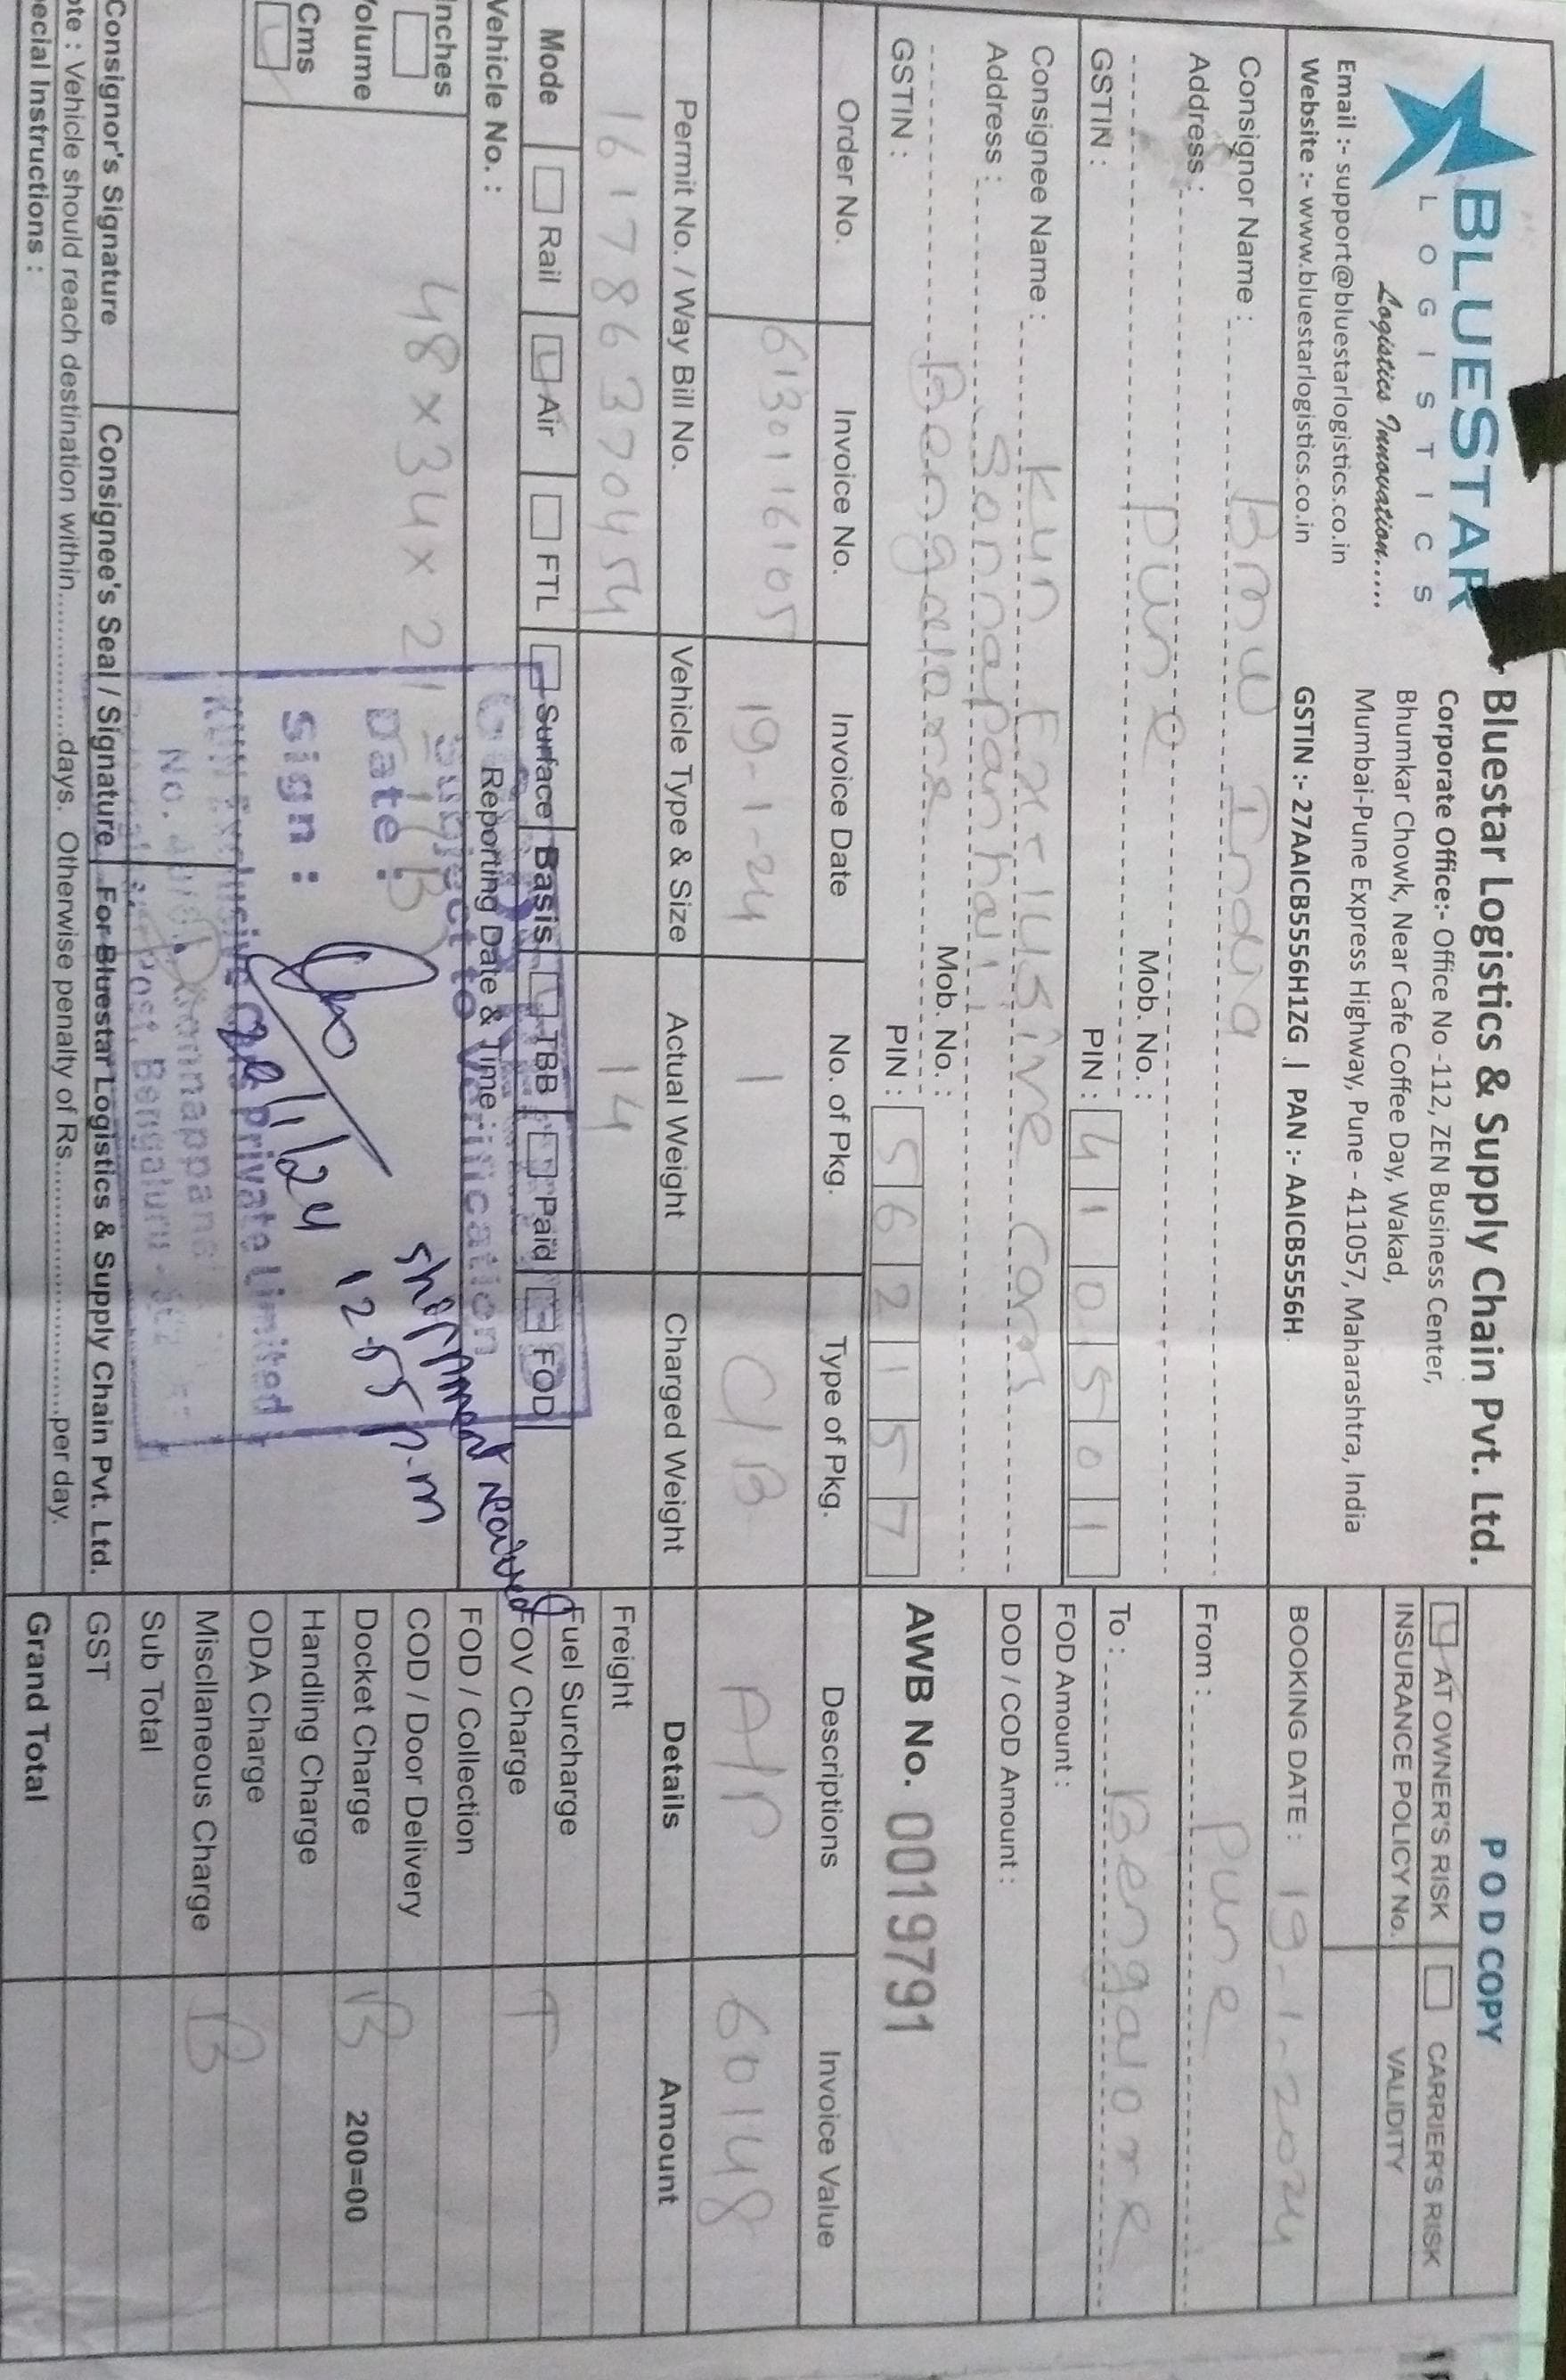 BLUESTAR
LOGISTICS
Logistics Innovation.....
Email :- support@bluestarlogistics.co.in
Website :- www.bluestarlogistics.co.in
Bluestar Logistics & Supply Chain Pvt. Ltd.
Corporate Office:- Office No -112, ZEN Business Center,
Bhumkar Chowk, Near Cafe Coffee Day, Wakad,
Mumbai-Pune Express Highway, Pune - 411057, Maharashtra, India
GSTIN :- 27AAICB5556H1ZG | PAN :- AAICB5556H
P O D COPY
AT OWNER'S RISK CARRIER'S RISK
INSURANCE POLICY No. VALIDITY
BOOKING DATE : 19-1-2024
Consignor Name : Bmw India
Address :
Pune Mob. No. :
GSTIN : PIN : 410501
From : Pune
To : Bengalore
FOD Amount :
DOD / COD Amount :
Consignee Name : Kun Exclusive cars
Address : Sonnapanhali
Bengalore Mob. No. :
GSTIN : PIN : 562157
AWB No. 0019791
Order No. Invoice No. Invoice Date No. of Pkg. Type of Pkg. Descriptions Invoice Value
6130116105 19-1-24 1 C/B A/P 60148
Permit No. / Way Bill No. Vehicle Type & Size Actual Weight Charged Weight Details Amount
161786370454 14
Freight
Mode Rail Air FTL Surface Basis TBB Paid FOD
Fuel Surcharge
FOV Charge
Vehicle No. : Reporting Date & Time :
FOD / Collection
Inches
Volume
Cms
48x34x21
1/B
Subject to Verification
Date :
Sign :
KUN Exclusive Private Limited
Post, Bengaluru
22/1/24
Shipment Received
12-55 p.m
COD / Door Delivery
Docket Charge 200=00
Handling Charge
ODA Charge
Miscllaneous Charge
Sub Total
GST
Grand Total
Consignor's Signature Consignee's Seal / Signature For Bluestar Logistics & Supply Chain Pvt. Ltd.
ote : Vehicle should reach destination within...............days. Otherwise penalty of Rs...............per day.
ecial Instructions :